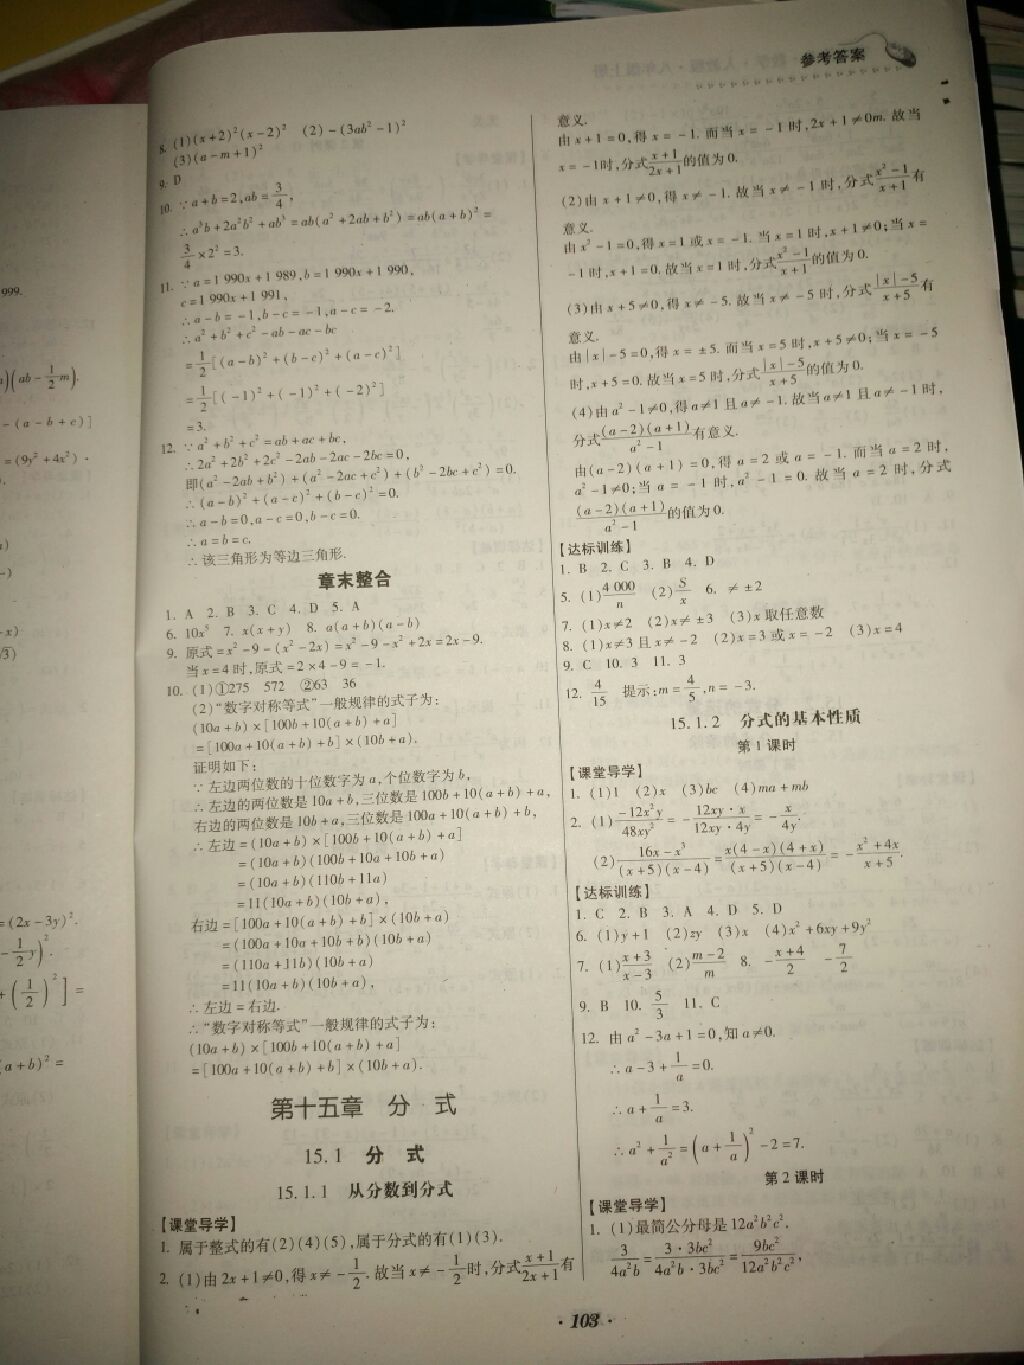 参考答案
8. (1)(x+2)²(x-2)² (2)-(3ab²-1)²
(3)(a-m+1)²
9. D
10. ∵a+b=2,ab=3/4,
∴a³b+2a²b²+ab³=ab(a²+2ab+b²)=ab(a+b)²=
3/4×2²=3.
11. ∵a=1 990x+1 989,b=1 990x+1 990,
c=1 990x+1 991,
∴a-b=-1,b-c=-1,a-c=-2.
∴a²+b²+c²-ab-ac-bc
=1/2[(a-b)²+(b-c)²+(a-c)²]
=1/2[(-1)²+(-1)²+(-2)²]
=3.
12. ∵a²+b²+c²=ab+ac+bc,
∴2a²+2b²+2c²-2ab-2ac-2bc=0,
即(a²-2ab+b²)+(a²-2ac+c²)+(b²-2bc+c²)=0.
∴(a-b)²+(a-c)²+(b-c)²=0.
∴a-b=0,a-c=0,b-c=0.
∴a=b=c.
∴该三角形为等边三角形.
章末整合
1. A 2. B 3. C 4. D 5. A
6. 10x⁵ 7. x(x+y) 8. a(a+b)(a-b)
9. 原式=x²-9-(x²-2x)=x²-9-x²+2x=2x-9.
当x=4时,原式=2×4-9=-1.
10. (1)①275 572 ②63 36
(2)“数字对称等式”一般规律的式子为:
(10a+b)×[100b+10(a+b)+a]
=[100a+10(a+b)+b]×(10b+a).
证明如下:
∵左边两位数的十位数字为a,个位数字为b,
∴左边的两位数是10a+b,三位数是100b+10(a+b)+a,
右边的两位数是10b+a,三位数是100a+10(a+b)+b,
∴左边=(10a+b)×[100b+10(a+b)+a]
=(10a+b)(100b+10a+10b+a)
=(10a+b)(110b+11a)
=11(10a+b)(10b+a),
右边=[100a+10(a+b)+b]×(10b+a)
=(100a+10a+10b+b)(10b+a)
=(110a+11b)(10b+a)
=11(10a+b)(10b+a),
∴左边=右边.
∴“数字对称等式”一般规律的式子为:
(10a+b)×[100b+10(a+b)+a]
=[100a+10(a+b)+b]×(10b+a).
第十五章 分 式
15.1 分 式
15.1.1 从分数到分式
【课堂导学】
1. 属于整式的有(2)(4)(5),属于分式的有(1)(3).
2. (1)由2x+1≠0,得x≠-1/2.故当x≠-1/2时,分式(x+1)/(2x+1)有
意义.
由x+1=0,得x=-1.而当x=-1时,2x+1≠0m.故当
x=-1时,分式(x+1)/(2x+1)的值为0.
(2)由x+1≠0,得x≠-1.故当x≠-1时,分式(x²-1)/(x+1)有
意义.
由x²-1=0,得x=1或x=-1.当x=1时,x+1≠0;当x=
-1时,x+1=0.故当x=1时,分式(x²-1)/(x+1)的值为0.
(3)由x+5≠0,得x≠-5.故当x≠-5时,分式(|x|-5)/(x+5)有
意义.
由|x|-5=0,得x=±5.而当x=5时,x+5≠0;当x=-5
时,x+5=0.故当x=5时,分式(|x|-5)/(x+5)的值为0.
(4)由a²-1≠0,得a≠1且a≠-1.故当a≠1且a≠-1时,
分式(a-2)(a+1)/(a²-1)有意义.
由(a-2)(a+1)=0,得a=2或a=-1.而当a=2时,
a²-1≠0;当a=-1时,a²-1=0.故当a=2时,分式
(a-2)(a+1)/(a²-1)的值为0.
【达标训练】
1. B 2. C 3. B 4. D
5. (1)4 000/n (2)S/x 6. ≠±2
7. (1)x≠2 (2)x≠±3 (3)x取任意数
8. (1)x≠3且x≠-2 (2)x=3或x=-2 (3)x=4
9. C 10. 3 11. 3
12. 4/15 提示:m=4/5,n=-3.
15.1.2 分式的基本性质
第1课时
【课堂导学】
1. (1)1 (2)x (3)bc (4)ma+mb
2. (1)-12x²y/48xy²=-12xy·x/12xy·4y=-x/4y.
(2)(16x-x³)/(x+5)(x-4)=x(4-x)(4+x)/(x+5)(x-4)=-(x²+4x)/(x+5).
【达标训练】
1. C 2. B 3. A 4. D 5. D
6. (1)y+1 (2)zy (3)x (4)x²+6xy+9y²
7. (1)(x+3)/(x-3) (2)(m-2)/m 8. -(x+4)/2 -7/2
9. B 10. 5/3 11. C
12. 由a²-3a+1=0,知a≠0.
∴a-3+1/a=0.
∴a+1/a=3.
∴a²+1/a²=(a+1/a)²-2=7.
第2课时
【课堂导学】
1. (1)最简公分母是12a²b²c²,
3/4a²b=3·3bc²/4a²b·3bc²=9bc²/12a²b²c²,
· 103 ·